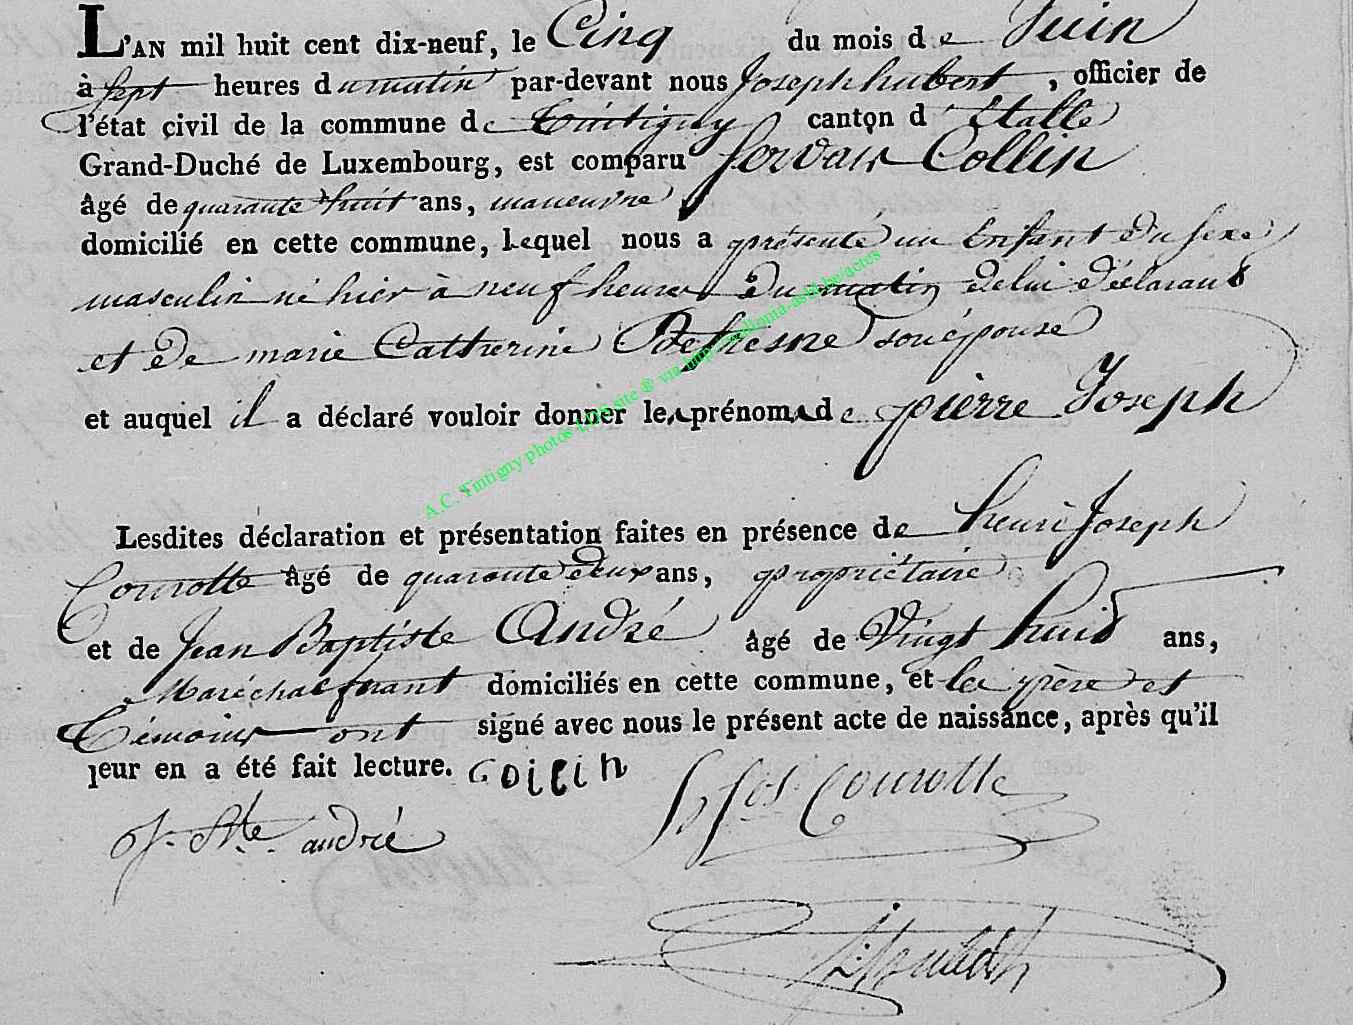 L'AN mil huit cent dix-neuf, le Cinq du mois de Juin
à sept heures du matin par-devant nous Joseph hubert, officier de
l'état civil de la commune de Tintigny canton d'Etalle
Grand-Duché de Luxembourg, est comparu Servais Collin
âgé de quarante huit ans, maneuvre
domicilié en cette commune, lequel nous a présenté un Enfant du sexe
masculin né hier à neuf heures du matin de lui déclarant
et de marie Catherine Defresne son épouse
et auquel il a déclaré vouloir donner les prénoms de pierre Joseph
Lesdites déclaration et présentation faites en présence de henri Joseph
Courotte âgé de quarante deux ans, propriétaire
et de Jean Baptiste André âgé de Vingt huit ans,
Maréchal ferant domiciliés en cette commune, et les père et
témoins ont signé avec nous le présent acte de naissance, après qu'il
leur en a été fait lecture. Collin
H Jos. Courotte
J. Bte. andré
A.C. Tintigny photos LDS site ® via http://wallonia-asbl.be/actes